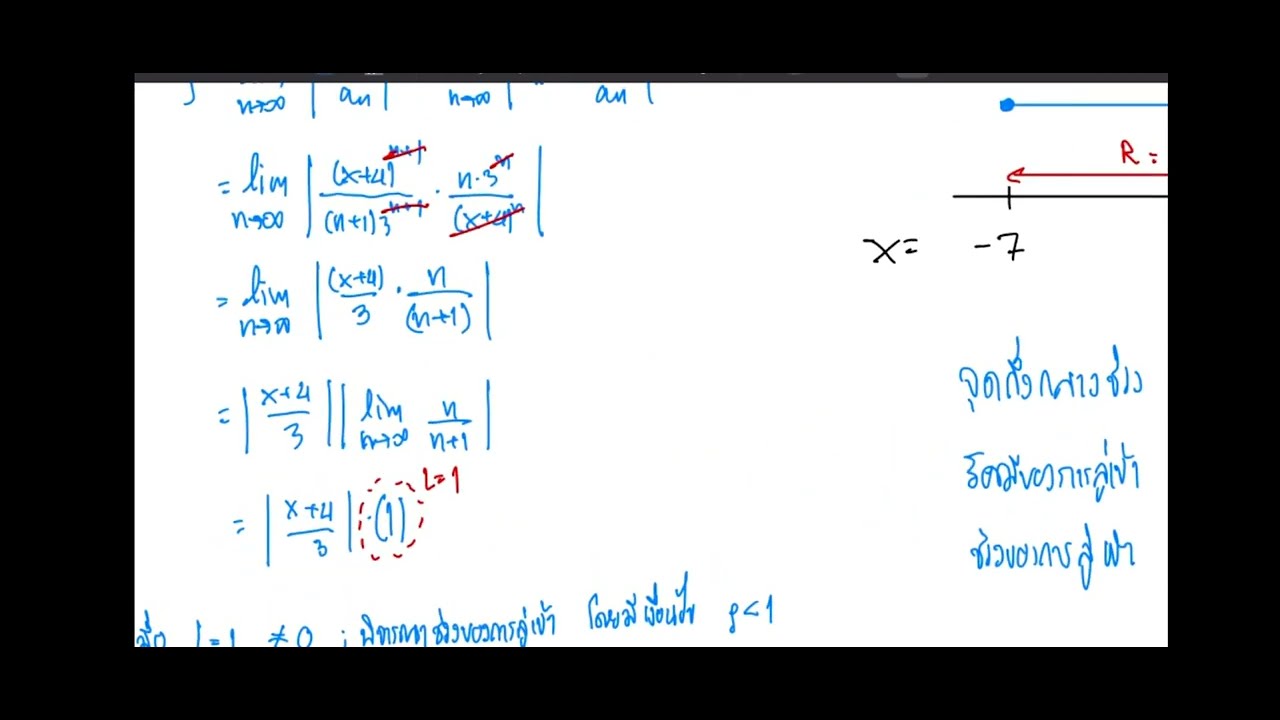 lim n→∞ | an | lim n→∞ | an |
= lim n→∞ | (x+4)^(n+1) / (n+1)3^(n+1) · n·3^n / (x+4)^n |
R =
= lim n→∞ | (x+4)/3 · n/(n+1) |
x = -7
= | (x+4)/3 | | lim n→∞ n/(n+1) |
จุดกึ่งกลางช่วง
= | (x+4)/3 | ·(1) L=1
รัศมีของการลู่เข้า
ช่วงของการลู่เข้า
เมื่อ L=1 ≠ 0 ; พิจารณาช่วงของการลู่เข้า โดยมีเงื่อนไข ρ<1